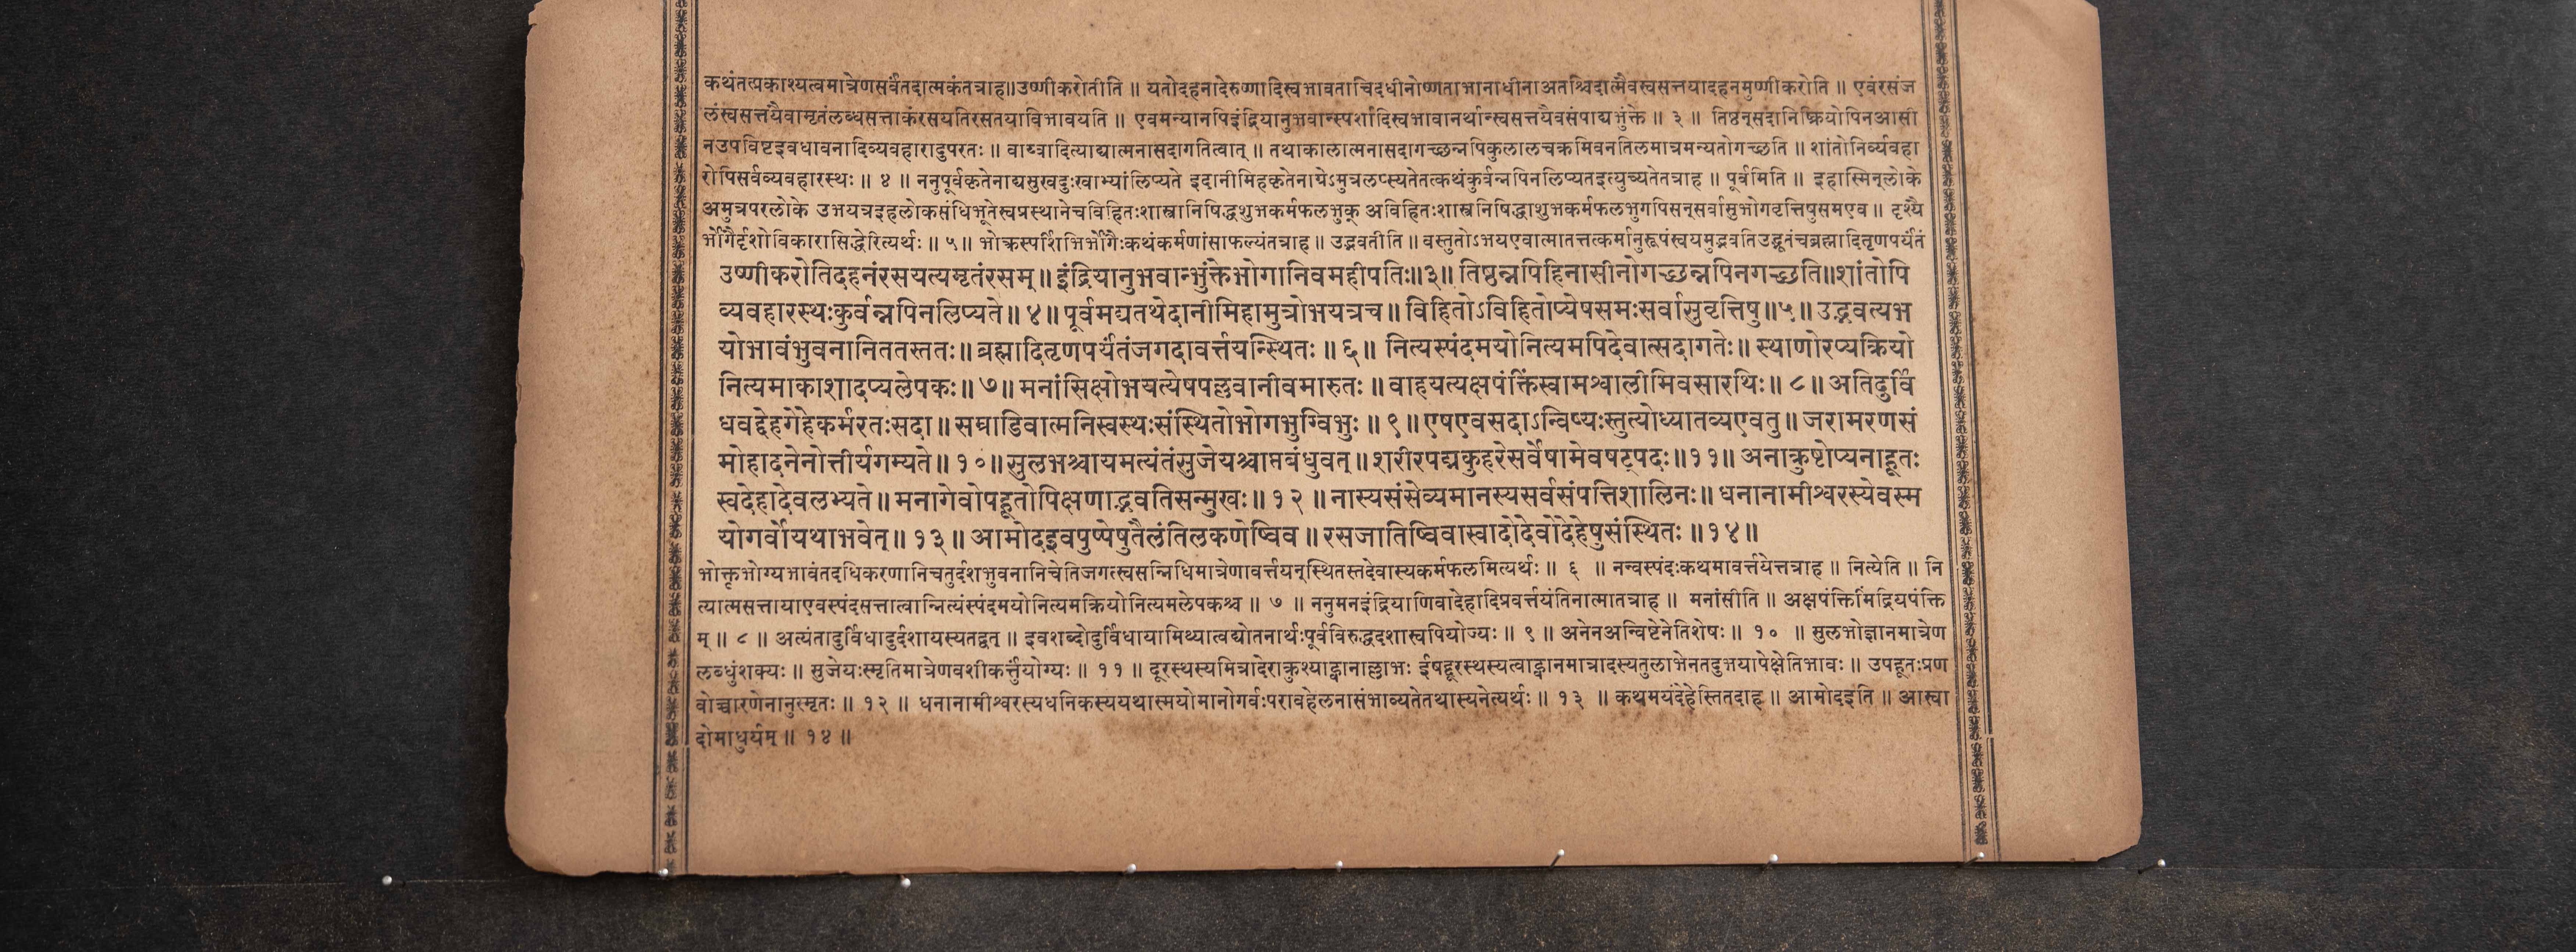 कथंतत्प्रकाश्यत्वमात्रेणसर्वंतदात्मकंतत्राह॥उष्णीकरोतीति ॥ यतोदहनादेरुष्णादिस्वभावताचिदधीनोष्णताभानाधीनाअतश्चिदात्मैवस्वसत्तयादहनमुष्णीकरोति ॥ एवंरसंज
लंस्वसत्तयैवामृतंलब्धसत्ताकंरसयतिरसतयाविभावयति ॥ एवमन्यानपिइंद्रियानुभवान्स्पर्शादिस्वभावानर्थान्स्वसत्तयैवसंपाद्यभुंक्ते ॥ ३ ॥ तिष्ठन्सदानिष्क्रियोपिनआसी
नउपविष्टइवधावनादिव्यवहारादुपरतः ॥ वाय्वादित्याद्यात्मनासदागतित्वात् ॥ तथाकालात्मनासदागच्छन्नपिकुलालचक्रमिवनतिलमात्रमन्यतोगच्छति ॥ शांतोनिर्व्यवहा
रोपिसर्वव्यवहारस्थः ॥ ४ ॥ ननुपूर्वकृतेनाद्यसुखदुःखाभ्यांलिप्यते इदानीमिहकृतेनाग्रेऽमुत्रलप्स्यतेतत्कथंकुर्वन्नपिनलिप्यतइत्युच्यतेतत्राह ॥ पूर्वमिति ॥ इहास्मिन्लोके
अमुत्रपरलोके उभयत्रइहलोकसंधिभूतेस्वप्नस्थानेचविहितःशास्त्रानिषिद्धशुभकर्मफलभुक् अविहितःशास्त्रनिषिद्धाशुभकर्मफलभुगपिसन्सर्वासुभोगवृत्तिषुसमएव ॥ दृश्यै
र्भोगैर्दृशोविकारासिद्धेरित्यर्थः ॥ ५ ॥ भोक्त्रस्पर्शिभिर्भोगैःकथंकर्मणांसाफल्यंतत्राह ॥ उद्भवतीति ॥ वस्तुतोऽभयएवात्मातत्तत्कर्मानुरूपंस्वयमुद्भवतिउद्भूतंचब्रह्मादितृणपर्यंतं
उष्णीकरोतिदहनंरसयत्यमृतंरसम् ॥ इंद्रियानुभवान्भुंक्तेभोगानिवमहीपतिः॥३॥ तिष्ठन्नपिहिनासीनोगच्छन्नपिनगच्छति॥शांतोपि
व्यवहारस्थःकुर्वन्नपिनलिप्यते ॥ ४ ॥ पूर्वमद्यतथेदानीमिहामुत्रोभयत्रच ॥ विहितोऽविहितोप्येषसमःसर्वासुवृत्तिषु ॥५॥ उद्भवत्यभ
योभावंभुवनानिततस्ततः ॥ ब्रह्मादितृणपर्यंतंजगदावर्त्तयन्स्थितः ॥ ६ ॥ नित्यस्पंदमयोनित्यमपिदेवात्सदागतेः ॥ स्थाणोरप्यक्रियो
नित्यमाकाशादप्यलेपकः ॥ ७ ॥ मनांसिक्षोभयत्येषपल्लवानीवमारुतः ॥ वाहयत्यक्षपंक्तिंस्वामश्वालीमिवसारथिः ॥ ८ ॥ अतिदुर्वि
धवद्देहगेहेकर्मरतःसदा ॥ सम्राडिवात्मनिस्वस्थःसंस्थितोभोगभुग्विभुः ॥ ९ ॥ एषएवसदाऽन्विष्यःस्तुत्योध्यातव्यएवतु ॥ जरामरणसं
मोहादनेनोत्तीर्यगम्यते ॥ १० ॥ सुलभश्चायमत्यंतंसुजेयश्चाप्तबंधुवत् ॥ शरीरपद्मकुहरेसर्वेषामेवषट्पदः ॥११॥ अनाक्रुष्टोप्यनाहूतः
स्वदेहादेवलभ्यते ॥ मनागेवोपहूतोपिक्षणाद्भवतिसन्मुखः ॥ १२ ॥ नास्यसंसेव्यमानस्यसर्वसंपत्तिशालिनः ॥ धनानामीश्वरस्येवस्म
योगर्वोयथाभवेत् ॥ १३ ॥ आमोदइवपुष्पेषुतैलंतिलकणेष्विव ॥ रसजातिष्विवास्वादोदेवोदेहेषुसंस्थितः ॥१४॥
भोक्तृभोग्यभावंतदधिकरणानिचतुर्दशभुवनानिचेतिजगत्स्वसन्निधिमात्रेणावर्त्तयन्स्थितस्तदेवास्यकर्मफलमित्यर्थः ॥ ६ ॥ नन्वस्पंदःकथमावर्त्तयेत्तत्राह ॥ नित्येति ॥ नि
त्यात्मसत्तायाएवस्पंदसत्तात्वान्नित्यंस्पंदमयोनित्यमक्रियोनित्यमलेपकश्च ॥ ७ ॥ ननुमनइंद्रियाणिवादेहादिप्रवर्त्तयंतिनात्मातत्राह ॥ मनांसीति ॥ अक्षपंक्तिमिंद्रियपंक्ति
म् ॥ ८ ॥ अत्यंतादुर्विधादुर्दशायस्यतद्वत् ॥ इवशब्दोदुर्विधायामिथ्यात्वद्योतनार्थःपूर्वविरुद्धदशास्वपियोज्यः ॥ ९ ॥ अनेनअन्विष्टेनेतिशेषः ॥ १० ॥ सुलभोज्ञानमात्रेण
लब्धुंशक्यः ॥ सुजेयःस्मृतिमात्रेणवशीकर्त्तुंयोग्यः ॥ ११ ॥ दूरस्थस्यमित्रादेराक्रुश्याह्वानाल्लाभः ईषद्दूरस्थस्यत्वाह्वानमात्रादस्यतुलाभेनतदुभयापेक्षेतिभावः ॥ उपहूतःप्रण
वोच्चारणेनानुस्मृतः ॥ १२ ॥ धनानामीश्वरस्यधनिकस्ययथास्मयोमानोगर्वःपरावहेलनासंभाव्यतेतथास्यनेत्यर्थः ॥ १३ ॥ कथमयंदेहेस्तितदाह ॥ आमोदइति ॥ आस्वा
दोमाधुर्यम् ॥ १४ ॥